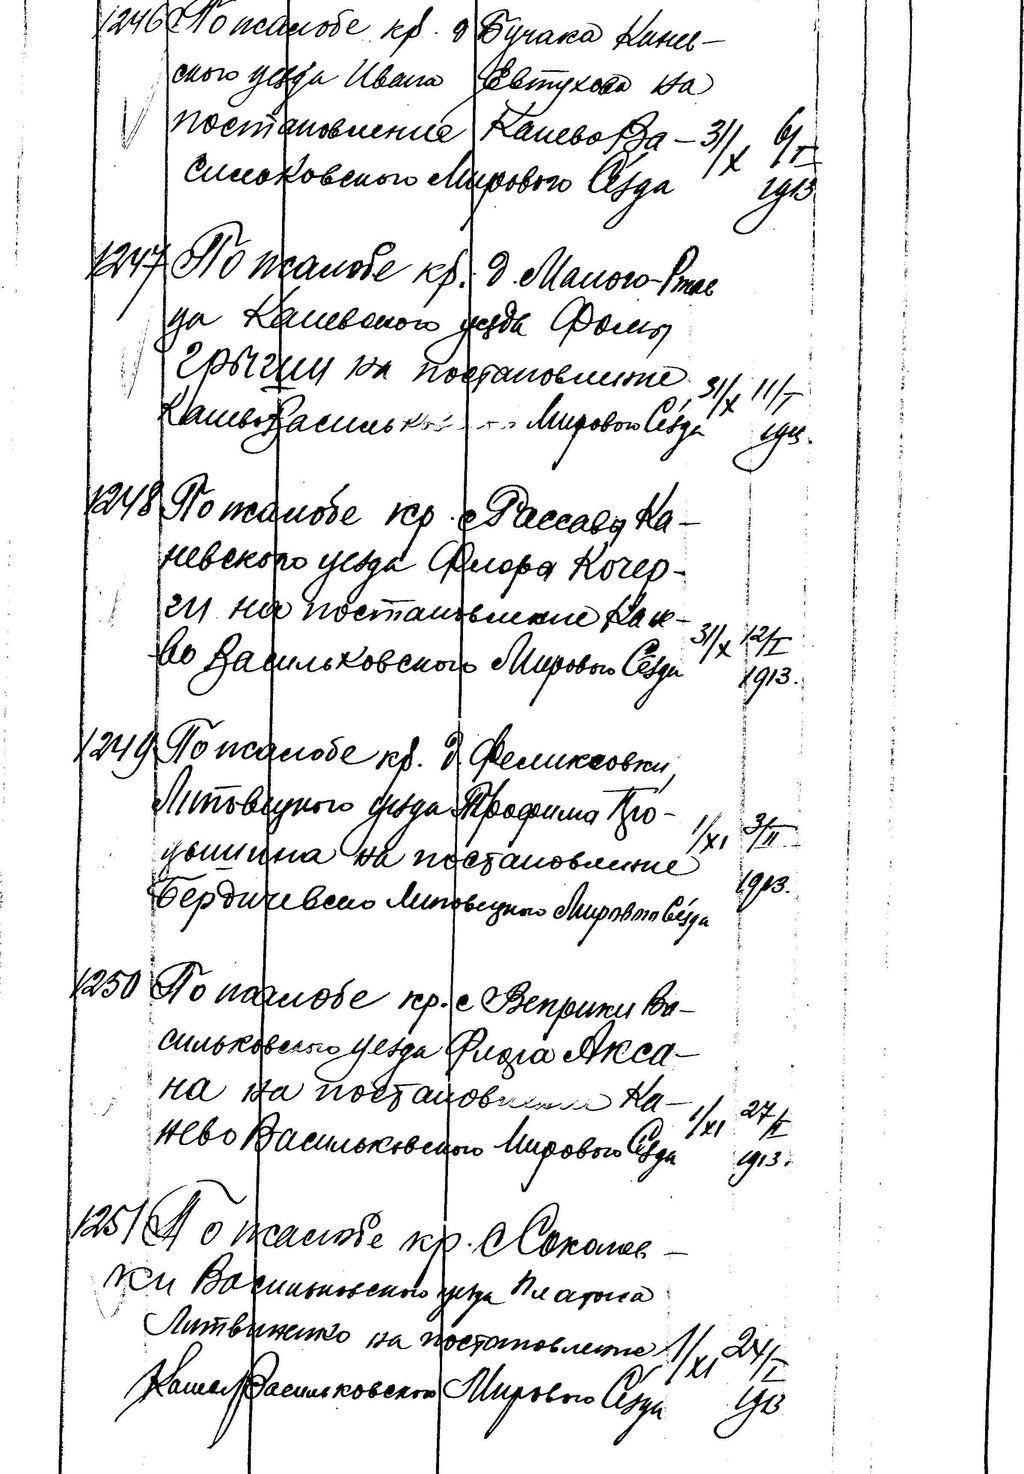 1246 По жалобе кр. д Бучака Канев-
ского уезда Ивана Евтухова на
постановление Канево Ва- 31/X 6/I
сильковского Мирового Сезда 1913
1247 По жалобе кр. д. Малого-Ржав
ца Каневского уезда Фомы
на постановление 31/X 11/I
Канево Васильковского Мирового Сезда 1913.
1248 По жалобе кр. с Рассавы Ка-
невского уезда Флора Кочер-
ги на постановление Кане-
во Васильковского Мирового Сезда 31/X 12/I
1913.
1249 По жалобе кр. д. Феликсовки,
Липовецкого уезда Трофима 1/XI 3/II
на постановление
Бердичевско Липовецкого Мирового Сезда 1913.
1250 По жалобе кр. с Веприки Ва-
сильковского уезда Акса-
на на постановление Ка- 1/XI 27/I
нево Васильковского Мирового Сезда 1913.
1251 По жалобе кр. с Соколов-
ки Васильковского уезда Платона
Литвиненко на постановление 1/XI 24/I
Канево Васильковского Мирового Сезда 1913